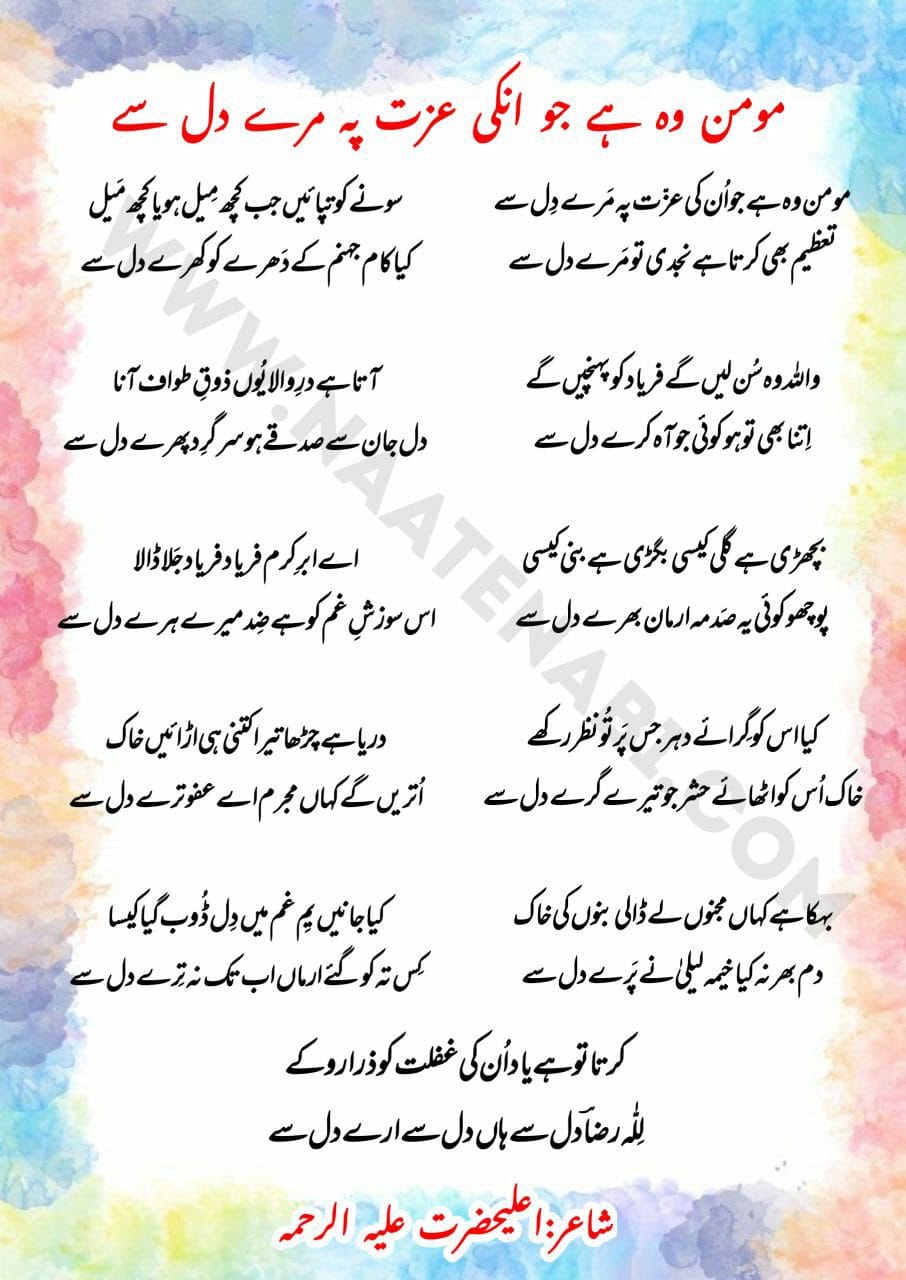 مومن وہ ہے جو انکی عزت پہ مرے دل سے
مومن وہ ہے جو اُن کی عزّت پہ مَرے دِل سے
تعظیم بھی کرتا ہے نجدی تو مَرے دل سے
سونے کو تپائیں جب کچھ مِیل ہو یا کچھ مَیل
کیا کام جہنم کے دَھرے کو کھرے دل سے
واللہ وہ سُن لیں گے فریاد کو پہنچیں گے
اِتنا بھی تو ہو کوئی جو آہ کرے دل سے
آتا ہے درِ والا یُوں ذوقِ طواف آنا
دل جان سے صدقے ہو سر گِرد پھرے دل سے
بچھڑی ہے گلی کیسی بگڑی ہے بنی کیسی
پوچھو کوئی یہ صَدمہ ارمان بھرے دل سے
اے ابرِ کرم فریاد فریاد جَلا ڈالا
اس سوزشِ غم کو ہے ضِد میرے ہرے دل سے
کیا اس کو گرائے دہر جس پَر تُو نظر رکھے
خاک اُس کو اٹھائے حشر جو تیرے گرے دل سے
دریا ہے چڑھا تیرا کتنی ہی اڑائیں خاک
اُتریں گے کہاں مجرم اے عفو ترے دل سے
بہکا ہے کہاں مجنوں لے ڈالی بنوں کی خاک
دم بھر نہ کیا خیمہ لیلیٰ نے پَرے دل سے
کیا جانیں یمِ غم میں دِل ڈُوب گیا کیسا
کِس تہ کو گئے ارماں اب تک نہ تِرے دل سے
کرتا تو ہے یاد اُن کی غفلت کو ذرا روکے
لِلّٰہ رضاؔ دل سے ہاں دل سے ارے دل سے
شاعر:اعلیحضرت علیہ الرحمہ
WWW.NAATENABI.COM